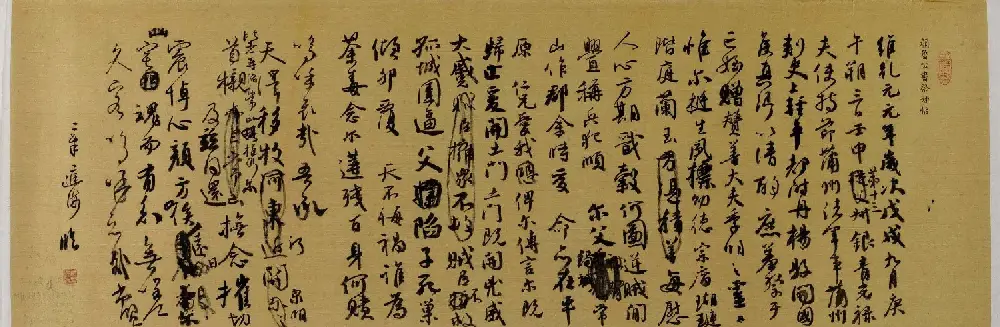 魯公書祭姪帖
維乾元元年歲次戊戌九月庚
午朔三日壬申第十三銀青光祿
夫使持節蒲州諸軍事蒲州
刺史上輕車都尉丹楊縣開國
侯真卿以清酌庶羞祭于
亡姪贈贊善大夫季明之靈
惟爾挺生夙標幼德宗廟瑚璉
階庭蘭玉方憑積善每慰
人心方期戩穀何圖逆賊閒
釁稱兵犯順爾父竭誠常
山作郡余時受命亦在平
原仁兄愛我恐俾爾傳言爾既
歸止爰開土門土門既開凶威
大蹙賊臣擁眾不救賊臣不救
孤城圍逼父陷子死巢
傾卵覆天不悔禍誰為
荼毒念爾遘殘百身何贖
嗚呼哀哉吾承
天澤移牧河東近河關泉明
比者再陷常山攜爾
首櫬及茲同還撫念摧切
震悼心顏方俟遠日
爾幽宅魂而有知無嗟
久客嗚呼哀哉尚饗
臨